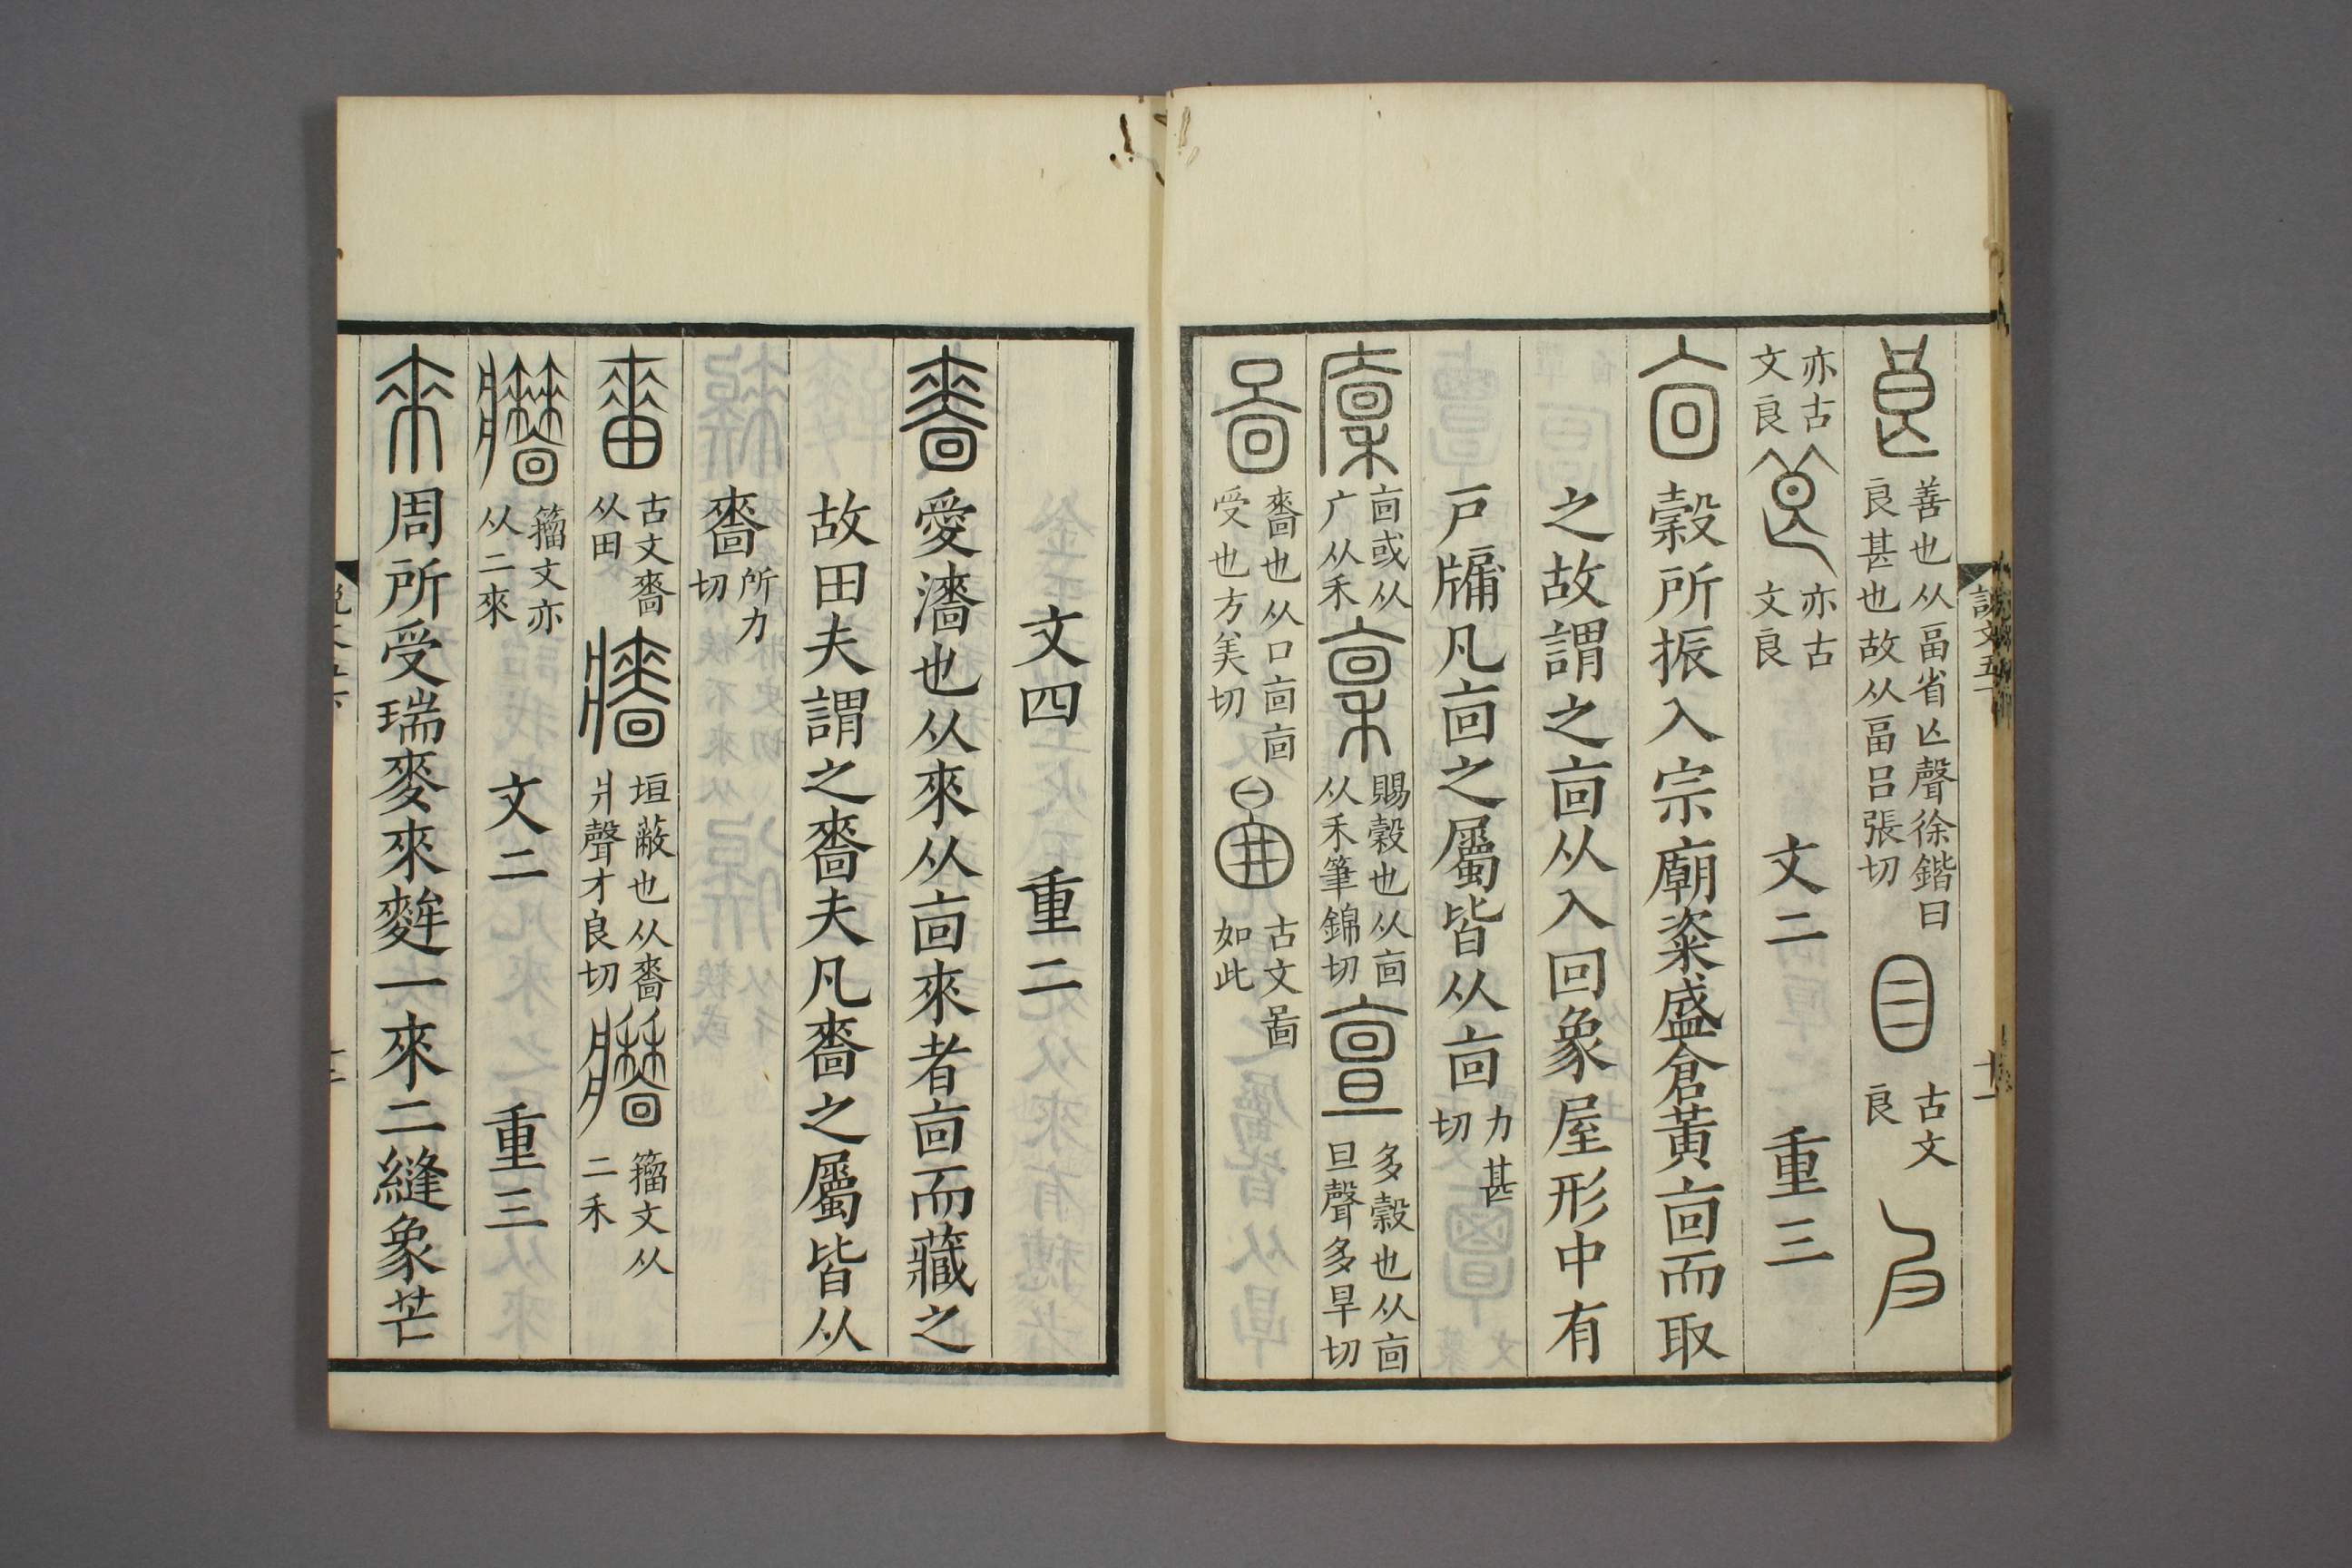 良善也从畗省亾聲徐鍇曰良甚也故从畗呂張切 目 古文良
亦古文良 亦古文良 文二 重三
㐭穀所振入宗廟粢盛倉黃㐭而取
之故謂之㐭从入回象屋形中有
戸牖凡㐭之屬皆从㐭力甚切
廩㐭或从广从禾 稟賜穀也从㐭从禾筆錦切 亶多穀也从㐭旦聲多旱切
啚嗇也从口㐭㐭受也方美切 古文啚如此
文四 重二
嗇愛濇也从來从㐭來者㐭而藏之
故田夫謂之嗇夫凡嗇之屬皆从
嗇所力切
古文嗇从田 牆垣蔽也从嗇爿聲才良切 籒文从二禾
籒文亦从二來 文二 重三
來周所受瑞麥來麰一來二縫象芒